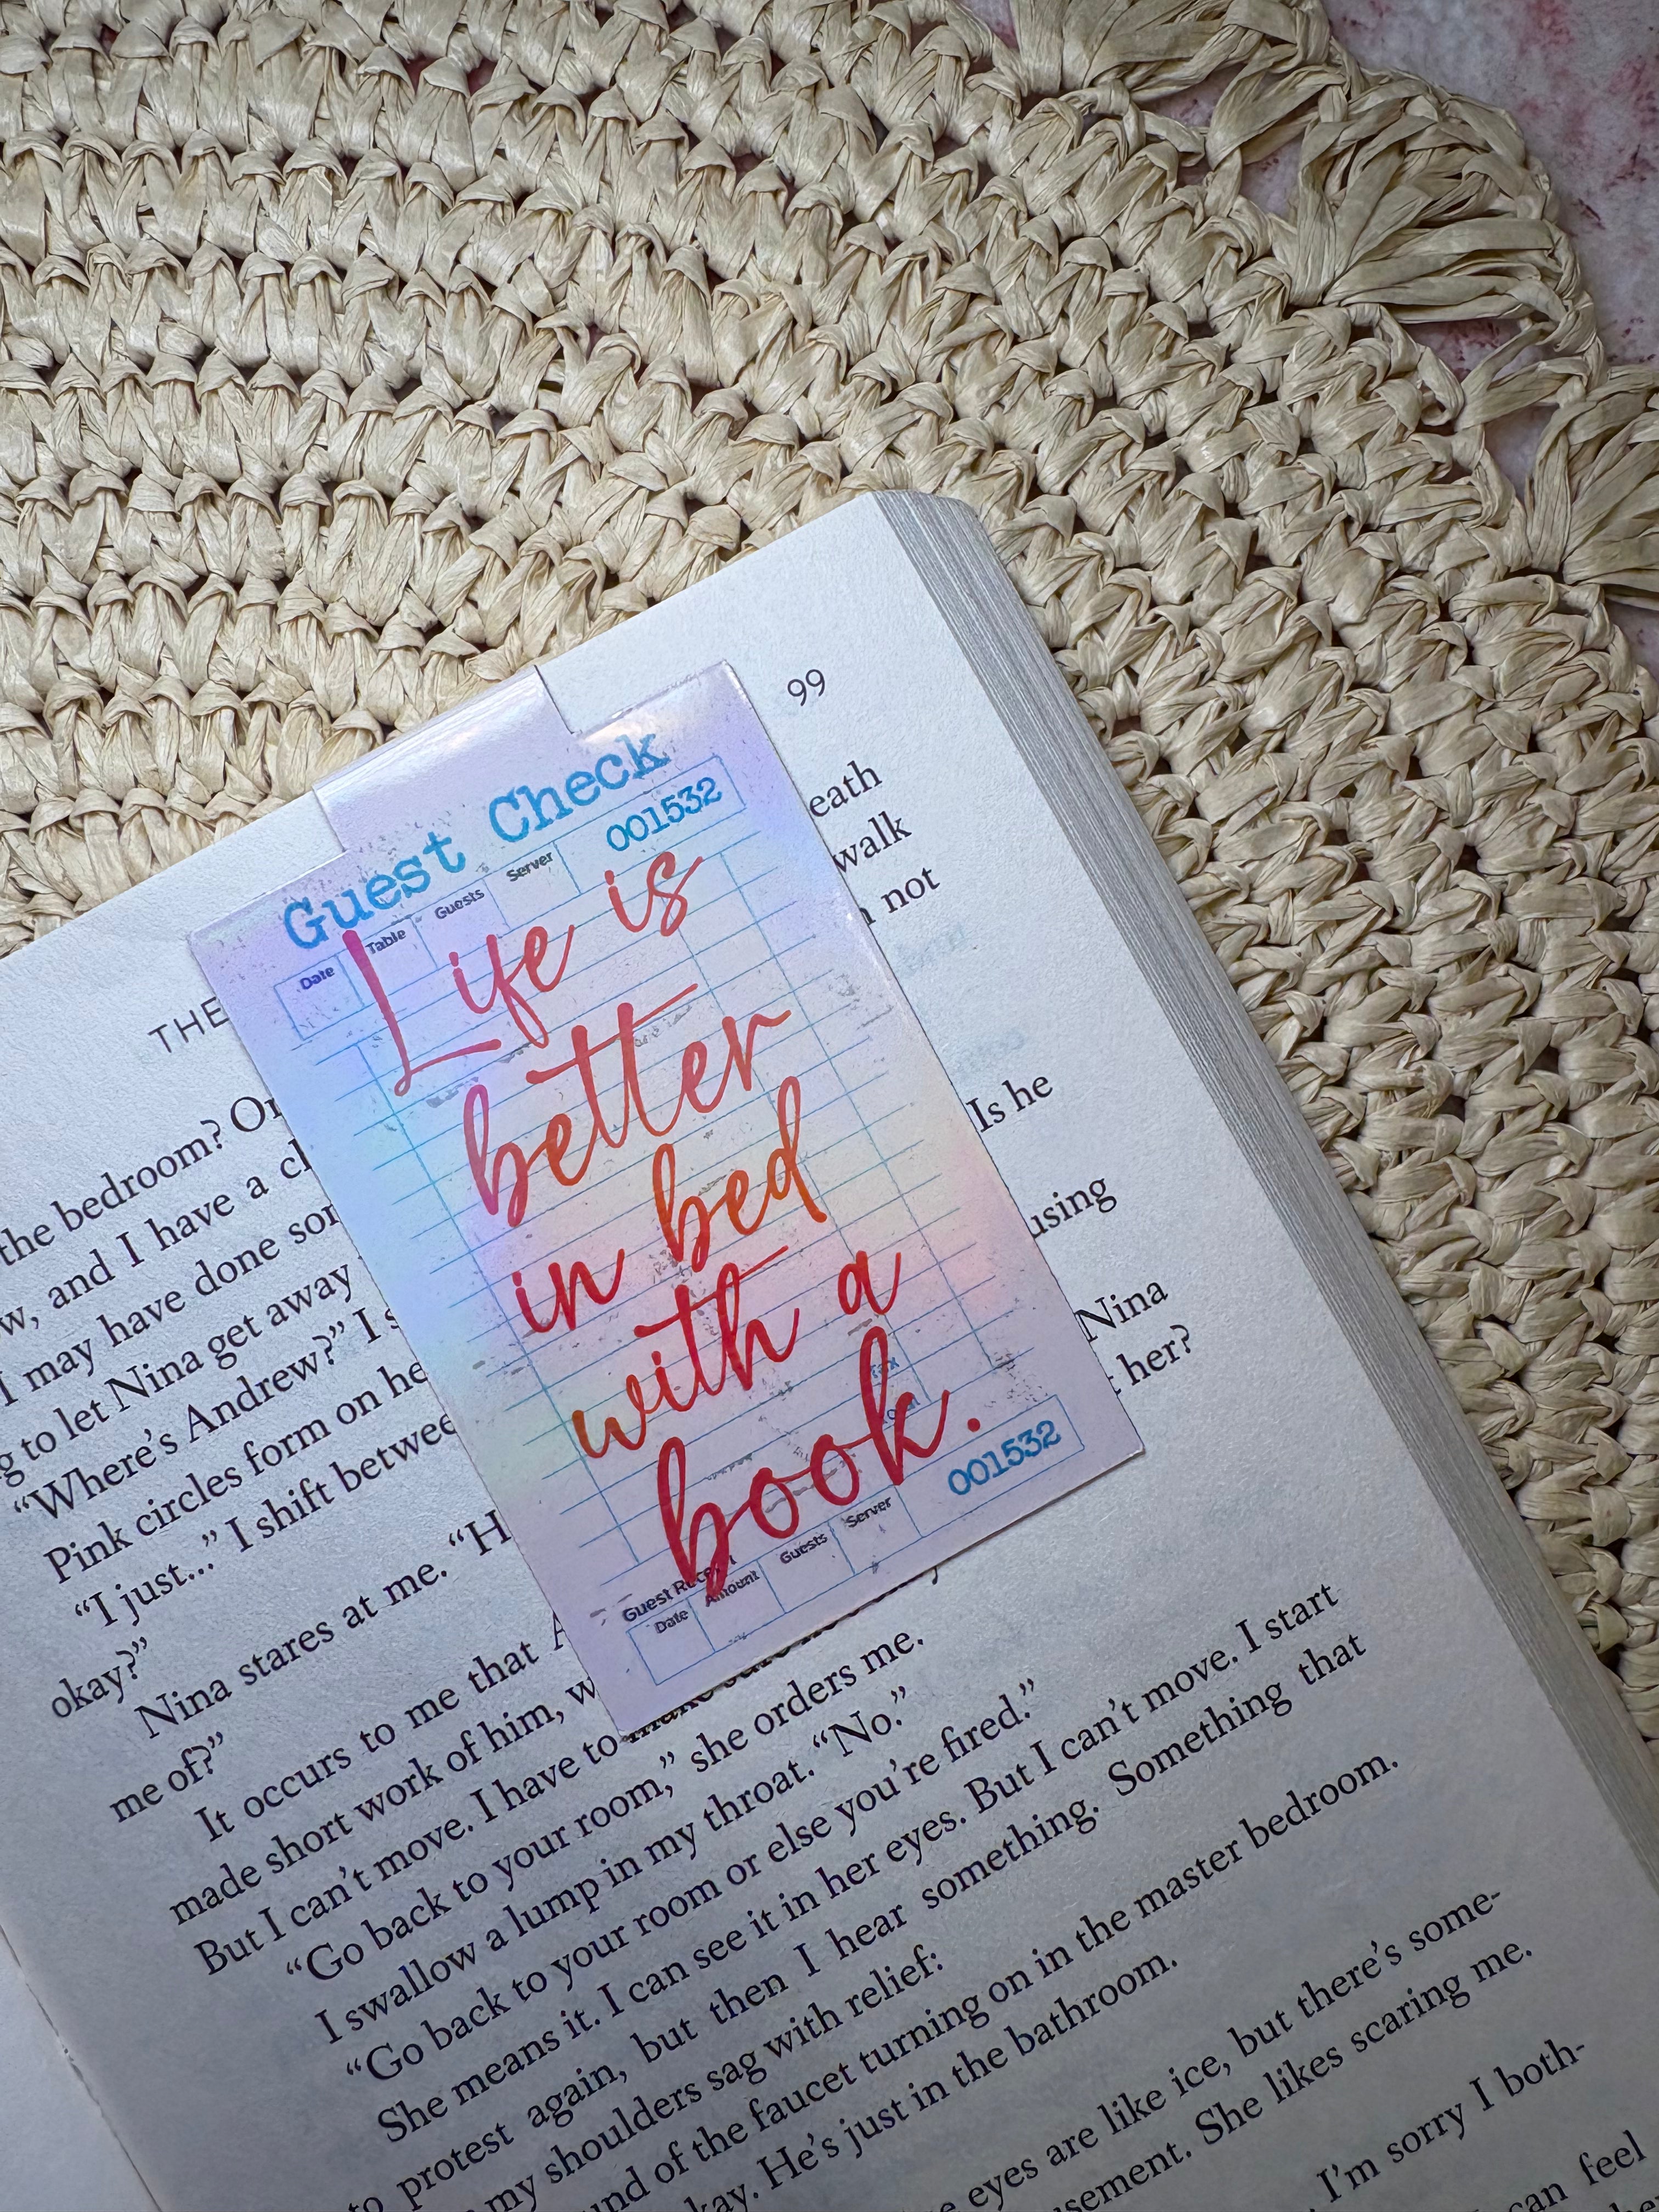 99
THE
Guest Check
Date Table Guests Server 001532
Life is
better
in bed
with a
book.
Tax
Total
Guest Receipt
Date Amount Guests Server 001532
eath
walk
not
the bedroom? Or
w, and I have a
Is he
I may have done
g to let Nina get away
using
“Where’s Andrew?” I
Pink circles form on he
Nina
“I just...” I shift between
her?
okay?”
Nina stares at me. “H
me of?”
It occurs to me that
made short work of him, w
But I can’t move. I have to make sure
“Go back to your room,” she orders me.
I swallow a lump in my throat. “No.”
“Go back to your room or else you’re fired.”
She means it. I can see it in her eyes. But I can’t move. I start
to protest again, but then I hear something. Something that
my shoulders sag with relief:
und of the faucet turning on in the master bedroom.
kay. He’s just in the bathroom.
e eyes are like ice, but there’s some-
usement. She likes scaring me.
I’m sorry I both-
can feel